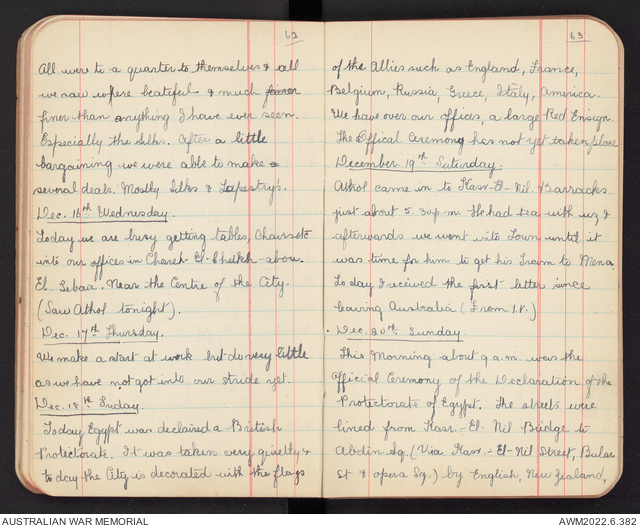 62
All were to a quarter to themselves & all
we saw were beateful & much finer
finer than anything I have ever seen.
Especially the silks. After a little
bargaining we were able to make a
several deals. Mostly Silks & Tapestry's.
Dec. 16th Wednesday.
Today we are busy getting tables, Chairs etc
into our offices in Chareh-El-Sheikh-abou
El Sebaa. Near the Centre of the City.
(Saw Athol tonight).
Dec. 17th Thursday.
We make a start at work but do very little
as we have not got into our stride yet.
Dec. 18th Friday.
Today Egypt was declared a British
Protectorate. It was taken very quietly &
today the City is decorated with the flags
63
of the Allies such as England, France,
Belgium, Russia, Greece, Italy, America.
We have over our offices, a large Red Ensign.
The Offical Ceremony has not yet taken place
December 19th Saturday.
Athol came in to Kasr-El-Nil Barracks
just about 5.30 p.m. He had tea with us, &
afterwards we went into Town until it
was time for him to get his Tram to Mena.
Today I received the first letter since
leaving Australia (From
Dec. 20th Sunday.
This Morning about 9 a.m. was the
Official Ceremony of the Declaration of the
Protectorate of Egypt. The streets were
lined from Kasr.-El-Nil Bridge to
Abdin Sq. (Via Kasr.-El-Nil Street, Bulac
St & opera Sq.) by English, New Zealand,
AUSTRALIAN WAR MEMORIAL
AWM2022.6.382